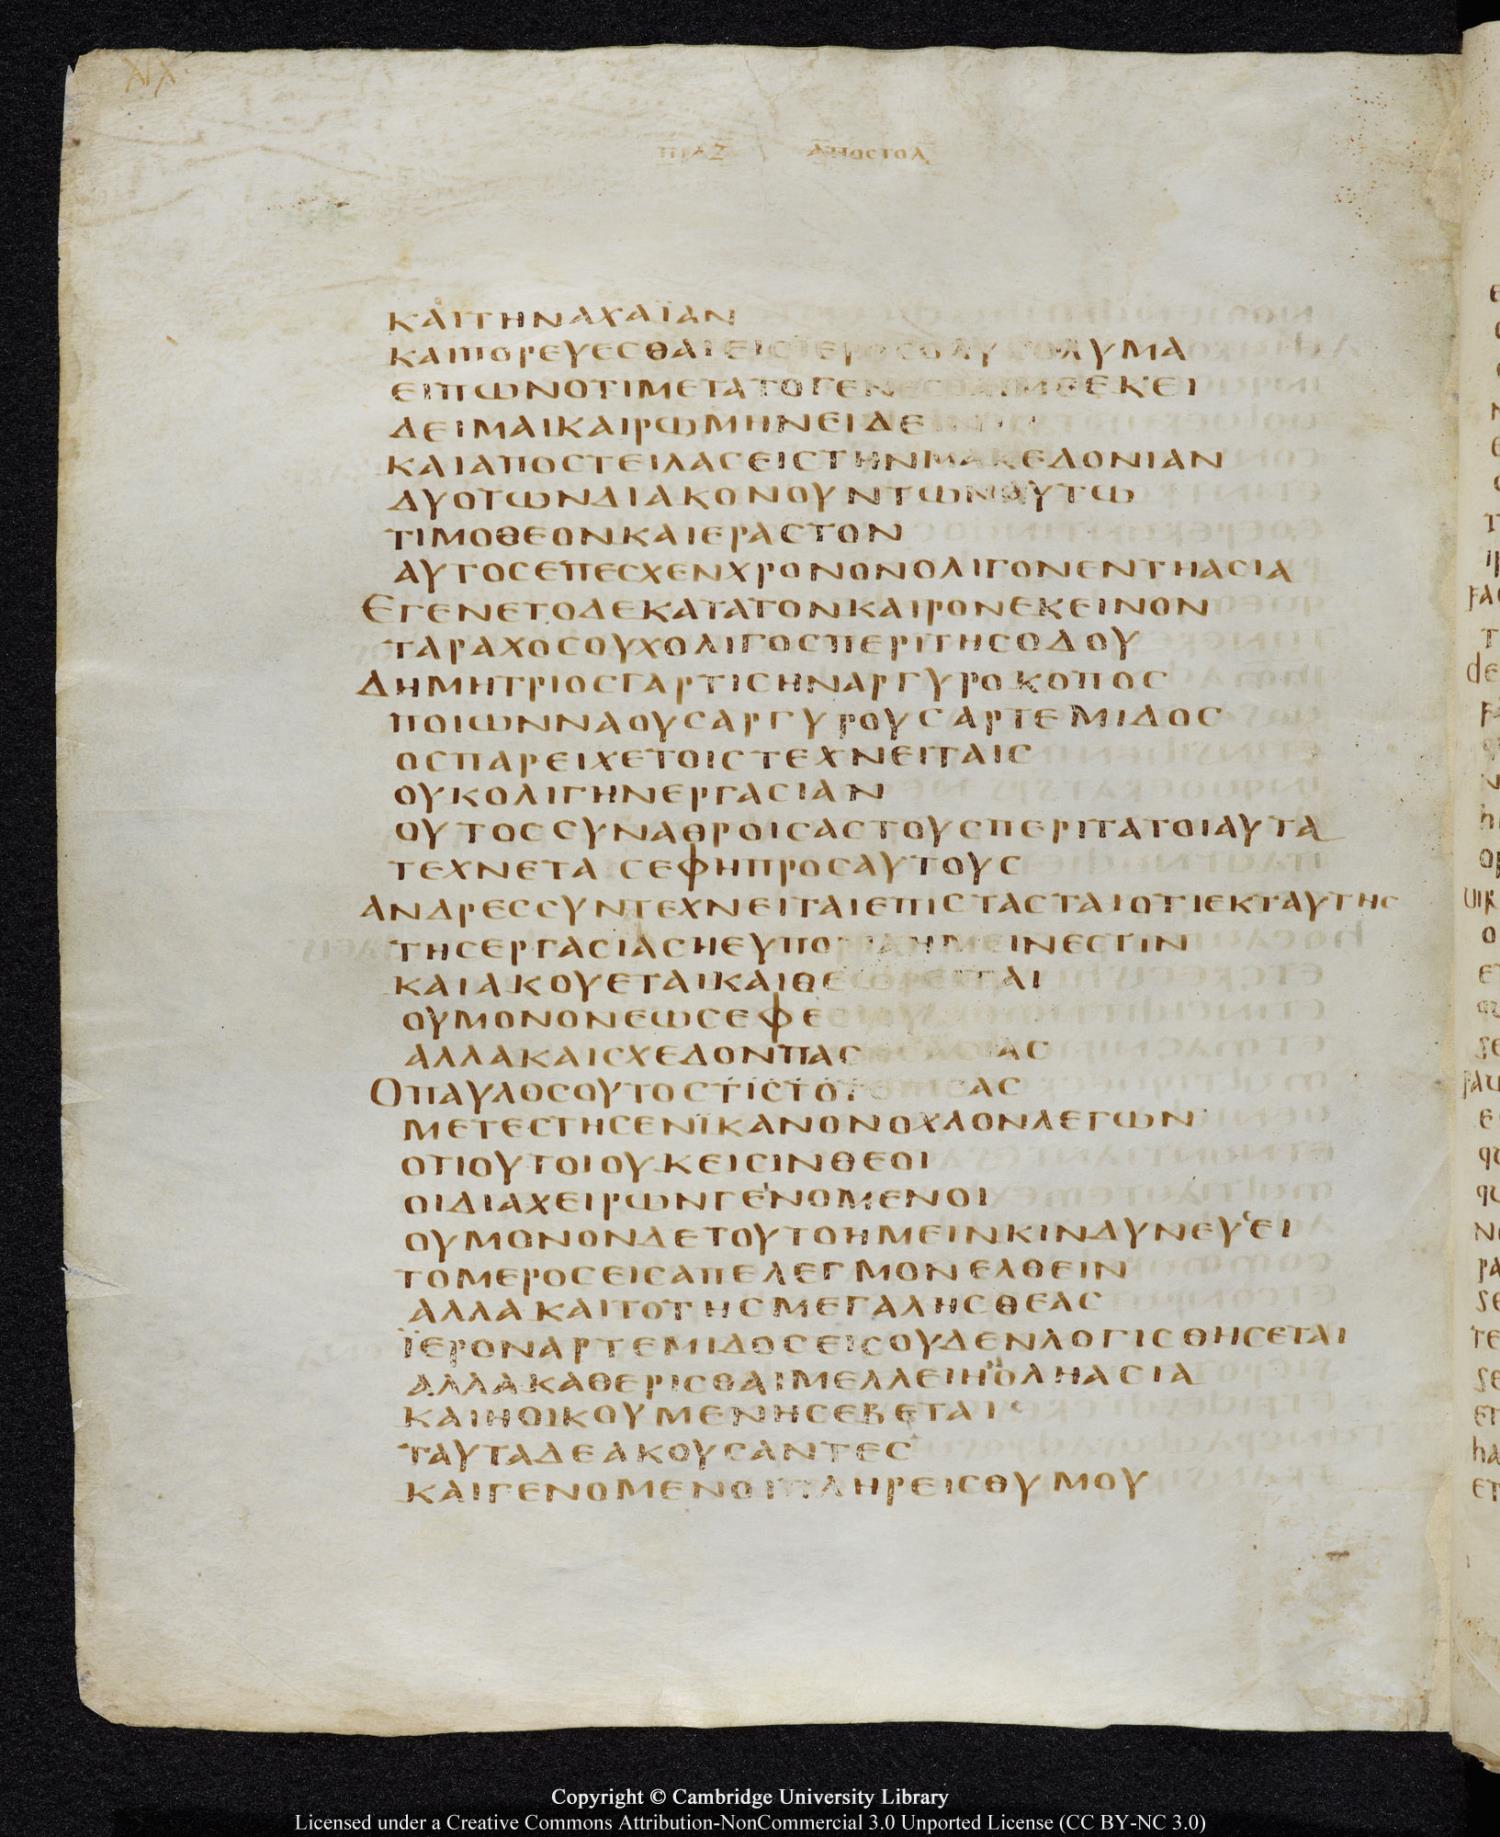 XIX
ΠΡΑΞ ΑΠΟСΤΟΛ
ΚΑΙΤΗΝΑΧΑΪΑΝ
ΚΑΙΠΟΡΕΥΕСΘΑΙΕΙС
ΕΙΠΩΝΟΤΙΜΕΤΑΤΟΓΕΝΕСΘΑΙΜΕΕΚΕΙ
ΔΕΙΜΑΙΚΑΙΡΩΜΗΝΕΙΔΕ
ΚΑΙΑΠΟСΤΕΙΛΑСΕΙСΤΗΝΜΑΚΕΔΟΝΙΑΝ
ΔΥΟΤΩΝΔΙΑΚΟΝΟΥΝΤΩΝΑΥΤΩ
ΤΙΜΟΘΕΟΝΚΑΙΕΡΑСΤΟΝ
ΑΥΤΟСΕΠΕСΧΕΝΧΡΟΝΟΝΟΛΙΓΟΝΕΝΤΗΑСΙΑ
ΕΓΕΝΕΤΟΔΕΚΑΤΑΤΟΝΚΑΙΡΟΝΕΚΕΙΝΟΝ
ΤΑΡΑΧΟСΟΥΧΟΛΙΓΟСΠΕΡΙΤΗСΟΔΟΥ
ΔΗΜΗΤΡΙΟСΓΑΡΤΙСΗΝΑΡΓΥΡΟΚΟΠΟС
ΠΟΙΩΝΝΑΟΥСΑΡΓΥΡΟΥСΑΡΤΕΜΙΔΟС
ΟСΠΑΡΕΙΧΕΤΟΙСΤΕΧΝΕΙΤΑΙС
ΟΥΚΟΛΙΓΗΝΕΡΓΑСΙΑΝ
ΟΥΤΟССΥΝΑΘΡΟΙСΑСΤΟΥСΠΕΡΙΤΑΤΟΙΑΥΤΑ
ΤΕΧΝΕΤΑ СΕΦΗΠΡΟСΑΥΤΟΥС
ΑΝΔΡΕССΥΝΤΕΧΝΕΙΤΑΙΕΠΙСΤΑСΤΑΙΟΤΙΕΚΤΑΥΤΗС
ΤΗСΕΡΓΑСΙΑСΗΕΥΠΟΡΙΑΗΜΕΙΝΕСΤΙΝ
ΚΑΙΑΚΟΥΕΤΑΙΚΑΙΘΕΩΡΕΙΤΑΙ
ΟΥΜΟΝΟΝΕΩСΕΦΕ
ΑΛΛΑΚΑΙСΧΕΔΟΝΠΑС ΑС
ΟΠΑΥΛΟСΟΥΤΟСΤΙСΤΟΤ ΑС
ΜΕΤΕСΤΗСΕΝΪΚΑΝΟΝΟΧΛΟΝΛΕΓΩΝ
ΟΤΙΟΥΤΟΙΟΥΚΕΙСΙΝΘΕΟΙ
ΟΙΔΙΑΧΕΙΡΩΝΓΕΝΟΜΕΝΟΙ
ΟΥΜΟΝΟΝΔΕΤΟΥΤΟΗΜΕΙΝΚΙΝΔΥΝΕΥΕΙ
ΤΟΜΕΡΟСΕΙСΑΠΕΛΕΓΜΟΝΕΛΘΕΙΝ
ΑΛΛΑΚΑΙΤΟΤΗСΜΕΓΑΛΗСΘΕΑС
ΪΕΡΟΝΑΡΤΕΜΙΔΟСΕΙСΟΥΔΕΝΛΟΓΙСΘΗСΕΤΑΙ
ΑΛΛΑΚΑΘΕΡΙСΘΑΙΜΕΛΛΕΙΗΟΛΗΑСΙΑ
ΚΑΙΗΟΙΚΟΥΜΕΝΗСΕΒΕΤΑΙ
ΤΑΥΤΑΔΕΑΚΟΥСΑΝΤΕС
ΚΑΙΓΕΝΟΜΕΝΟΙΠΛΗΡΕΙСΘΥΜΟΥ
Copyright © Cambridge University Library
Licensed under a Creative Commons Attribution-NonCommercial 3.0 Unported License (CC BY-NC 3.0)